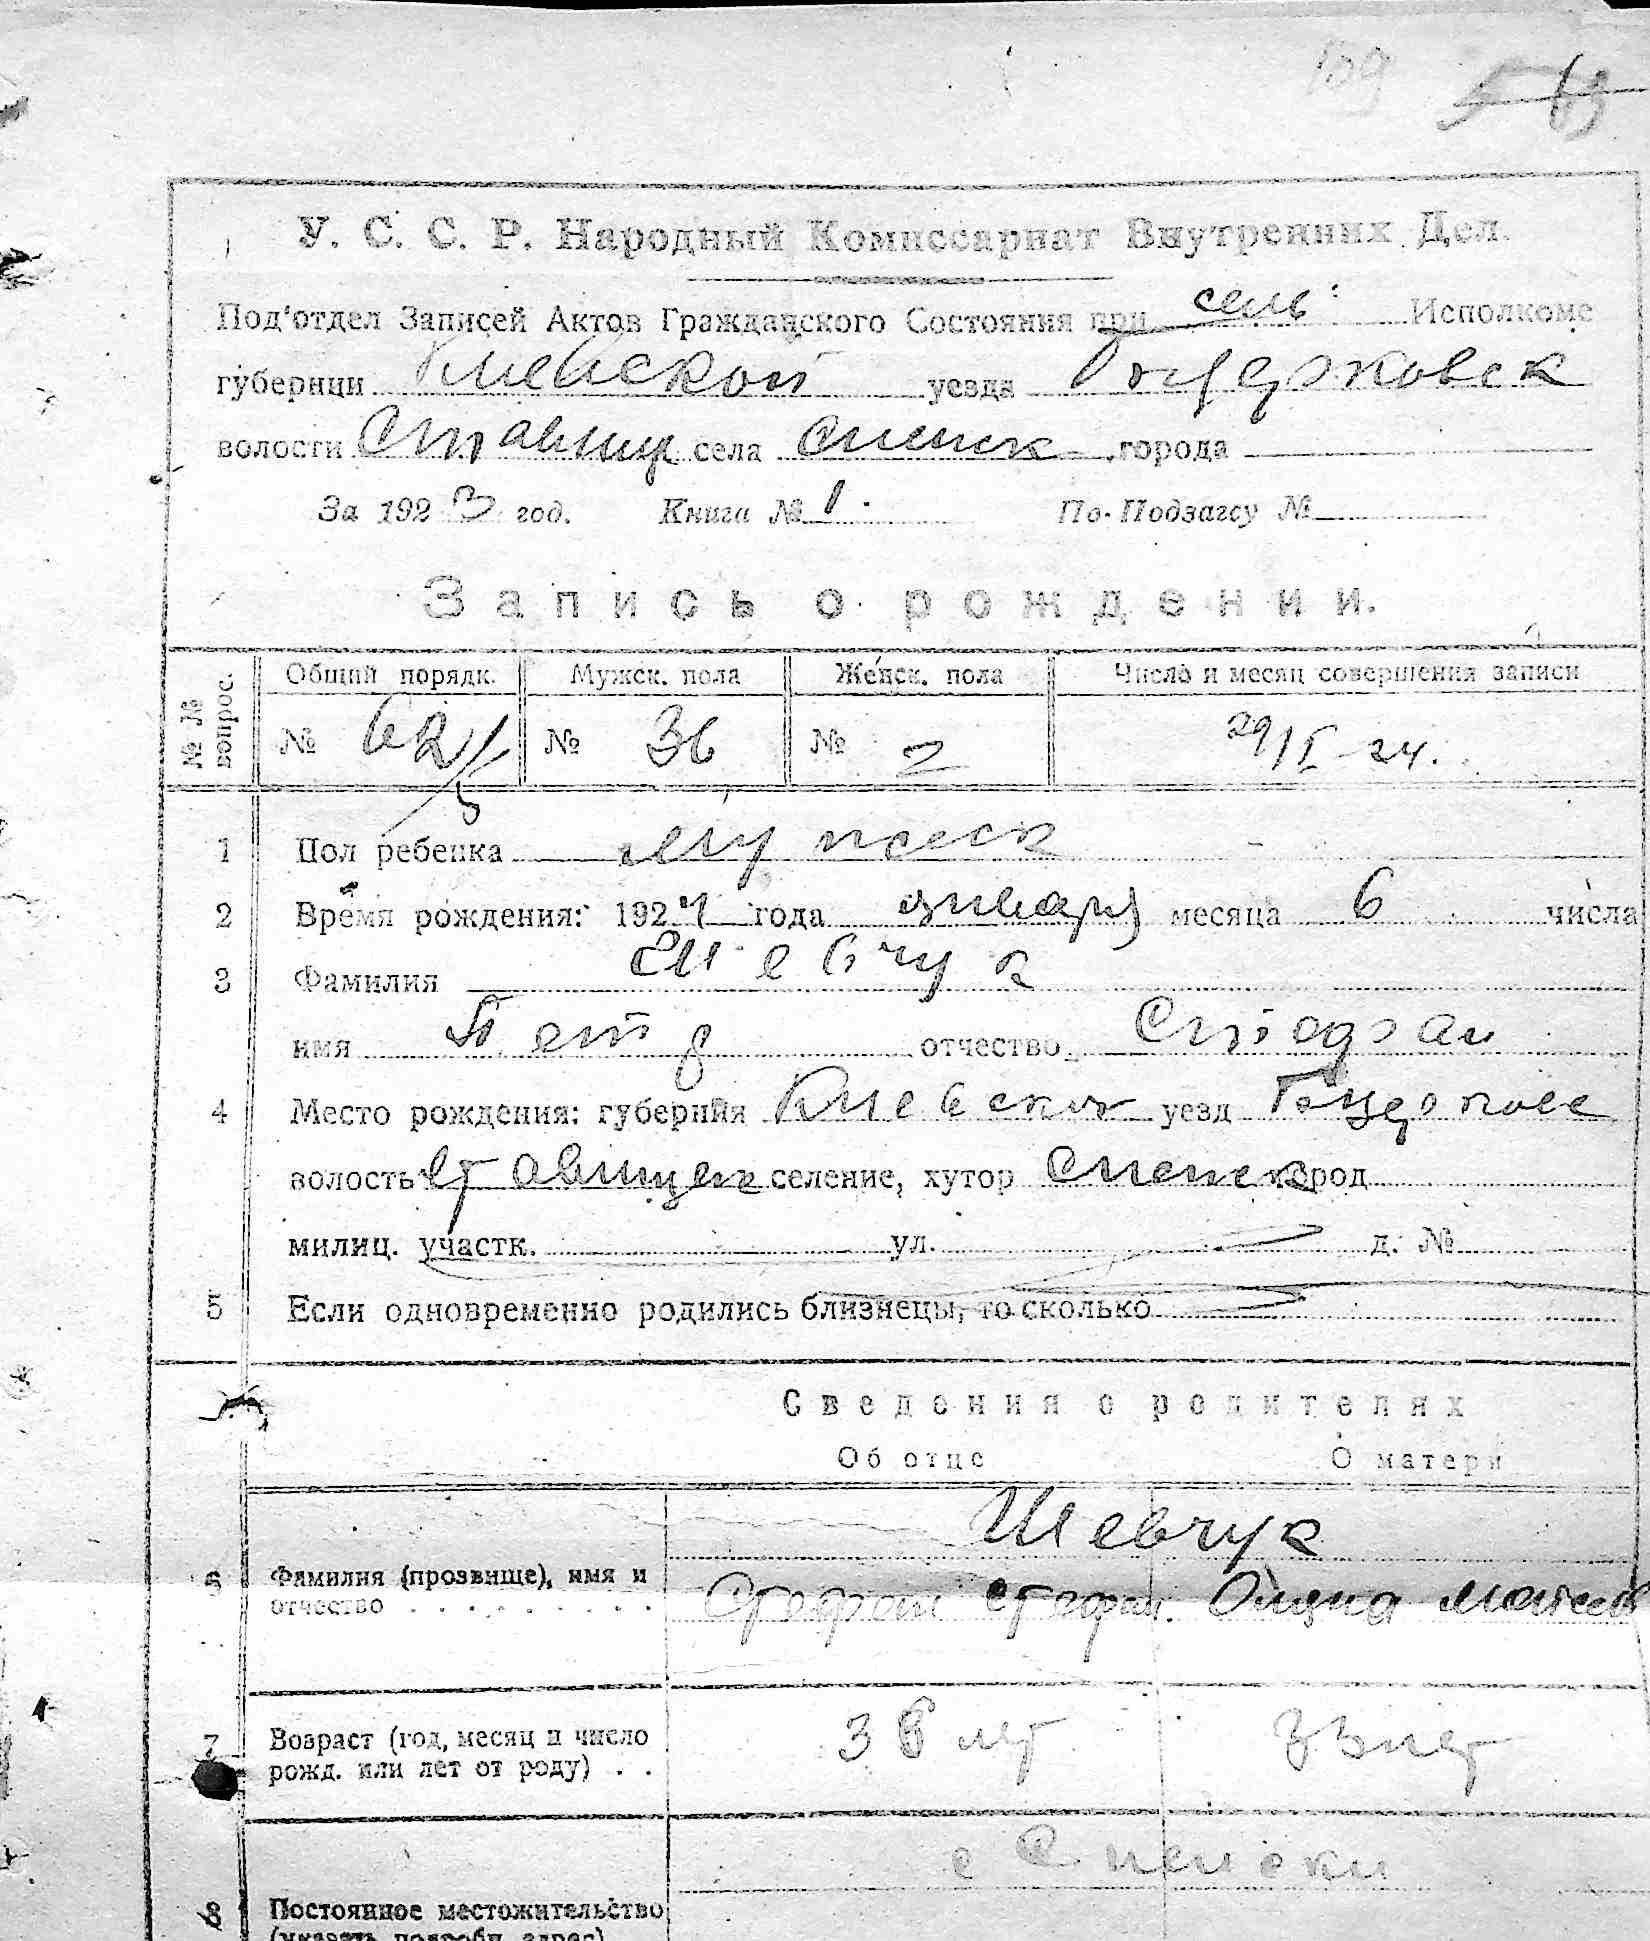 У. С. С. Р. Народный Комиссариат Внутренних Дел.
Под'отдел Записей Актов Гражданского Состояния при сель: Исполкоме
губернии Киевской уезда
волости Ставищ села города
За 1923 год. Книга № 1. По-Подзагсу №
Запись о рождении.
№№ вопрос. Общий порядк. Мужск. пола Женск. пола Число и месяц совершения записи
№ 62 № 36 № 29/I-24.
1 Пол ребенка мужеск
2 Время рождения: 1924 года января месяца 6 числа
3 Фамилия Шевчук
имя Петр отчество Стефан
4 Место рождения: губерния Киевск уезд
волость Ставищек селение, хутор город
милиц. участк. ул. д. №
5 Если одновременно родились близнецы, то сколько
Сведения о родителях
Об отце О матери
Шевчук
6 Фамилия (прозвище), имя и
отчество . . . . . . . . . Стефан Стефан.
7 Возраст (год, месяц и число
рожд. или лет от роду) . . лет 33 лет
8 Постоянное местожительство
(указать подробн. адрес)